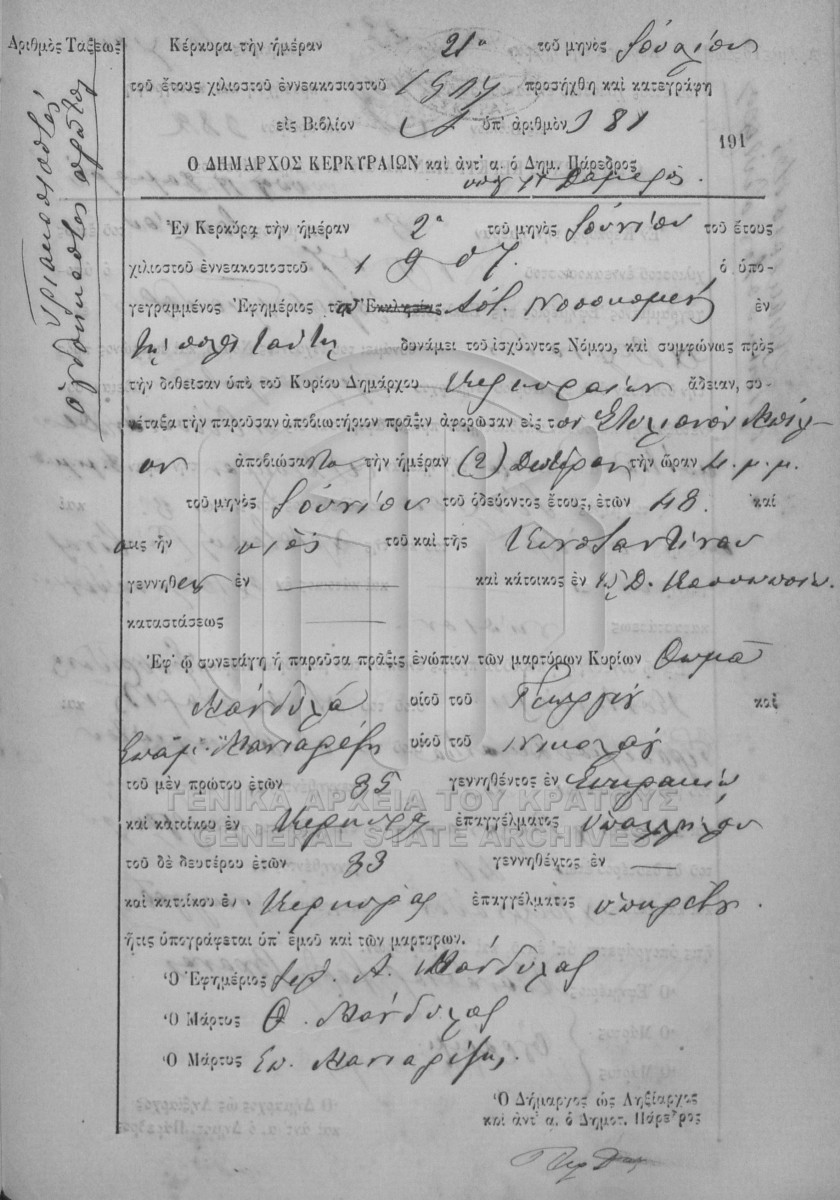 Ἀριθμὸς Τάξεως
τριακοσιοστὸς
ὀγδοηκοστὸς πρῶτος
Κέρκυρα τὴν ἡμέραν 21ῃ τοῦ μηνὸς Ἰουλίου
τοῦ ἔτους χιλιοστοῦ ἐννεακοσιοστοῦ 1907 προσήχθη καὶ κατεγράφη
εἰς Βιβλίον ὑπ' ἀριθμὸν 381
191
Ὁ ΔΗΜΑΡΧΟΣ ΚΕΡΚΥΡΑΙΩΝ καὶ ἀντ' α. ὁ Δημ. Πάρεδρος
Ἐν Κερκύρᾳ τὴν ἡμέραν 2ᾳ τοῦ μηνὸς Ἰουνίου τοῦ ἔτους
χιλιοστοῦ ἐννεακοσιοστοῦ 1907. ὁ ὑπο-
γεγραμμένος Ἐφημέριος τοῦ Ἐκκλησίας ἐν
τῇ πόλει ταύτῃ δυνάμει τοῦ ἰσχύοντος Νόμου, καὶ συμφώνως πρὸς
τὴν δοθεῖσαν ὑπὸ τοῦ Κυρίου Δημάρχου Κερκυραίων ἄδειαν, συ-
νέταξα τὴν παροῦσαν ἀποβιωτήριον πρᾶξιν ἀφορῶσαν εἰς τον Στυλιανὸν
ἀποβιώσαντα τὴν ἡμέραν (2) Δευτέραν τὴν ὥραν 4. μ. μ.
τοῦ μηνὸς Ἰουνίου τοῦ ὁδεύοντος ἔτους, ἐτῶν 48. καὶ
οτις ἦν υἱὸς τοῦ καὶ τῆς Κωνσταντίνου
γεννηθεὶς ἐν καὶ κάτοικος ἐν
καταστάσεως
Ἐφ' ᾧ συνετάγη ἡ παροῦσα πρᾶξις ἐνώπιον τῶν μαρτύρων Κυρίων Θωμᾶ
Μάνδυλα υἱοῦ τοῦ Γεωργίου καὶ
υἱοῦ τοῦ Νικολάου
τοῦ μὲν πρώτου ἐτῶν 35 γεννηθέντος ἐν
καὶ κατοίκου ἐν Κερκύρᾳ ἐπαγγέλματος ὑπαλλήλου
τοῦ δὲ δευτέρου ἐτῶν 33 γεννηθέντος ἐν
καὶ κατοίκου ἐν Κερκύρας ἐπαγγέλματος ὑπηρέτου.
ἥτις ὑπογράφεται ὑπ' ἐμοῦ καὶ τῶν μαρτύρων.
Ὁ Ἐφημέριος Ἱερ. Α. Μάνδυλας
Ὁ Μάρτυς Θ. Μάνδυλας
Ὁ Μάρτυς Επ.
Ὁ Δήμαρχος ὡς Ληξίαρχος
καὶ ἀντ' α. ὁ Δημοτ. Πάρεδρος
ΓΕΝΙΚΑ ΑΡΧΕΙΑ ΤΟΥ ΚΡΑΤΟΥΣ
GENERAL STATE ARCHIVES